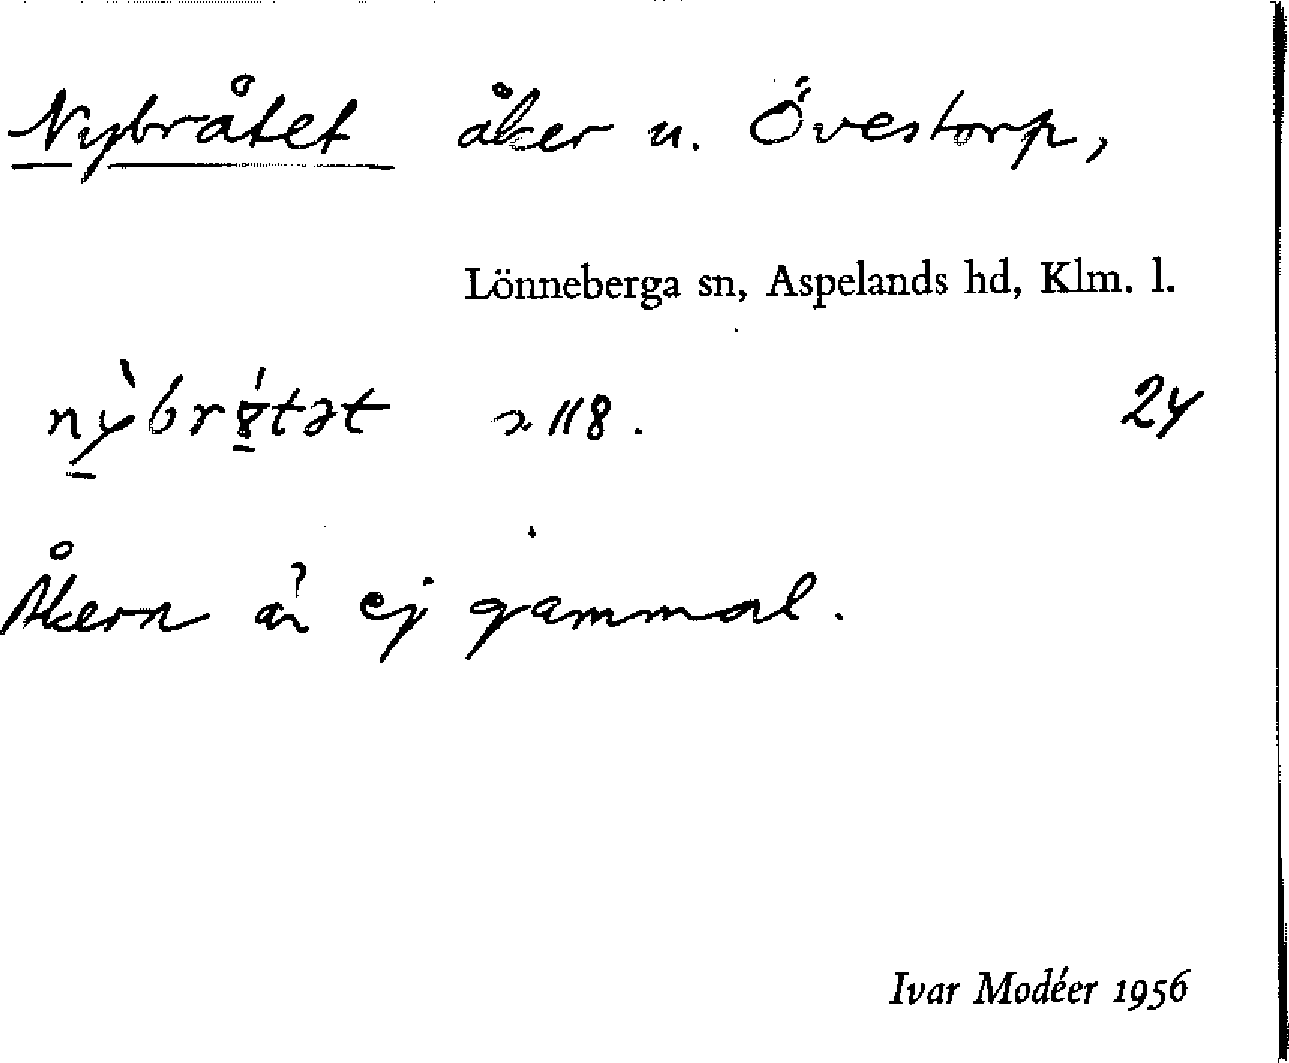 Nybråtet åker u. Övestorp,
Lönneberga sn, Aspelands hd, Klm. l.
24
Åkern är ej gammal.
Ivar Modéer 1956